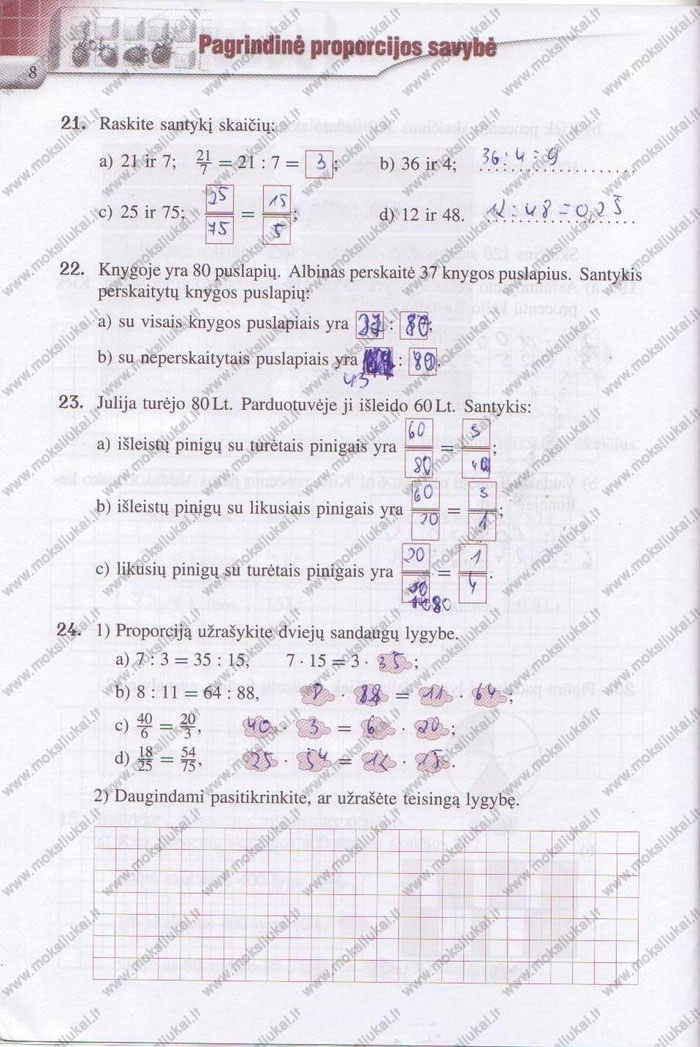 Pagrindinė proporcijos savybė
8
21. Raskite santykį skaičių:
a) 21 ir 7; 21/7 = 21 : 7 = 3; b) 36 ir 4; 36 : 4 = 9
c) 25 ir 75; 25/75 = 15/5; d) 12 ir 48. 12 : 48 = 0,25
22. Knygoje yra 80 puslapių. Albinas perskaitė 37 knygos puslapius. Santykis
perskaitytų knygos puslapių:
a) su visais knygos puslapiais yra 37 : 80;
b) su neperskaitytais puslapiais yra : 80.
43
23. Julija turėjo 80 Lt. Parduotuvėje ji išleido 60 Lt. Santykis:
a) išleistų pinigų su turėtais pinigais yra 60/80 = 3/;
b) išleistų pinigų su likusiais pinigais yra 60/20 = 3/1;
c) likusių pinigų su turėtais pinigais yra 20/80 = 1/4.
24. 1) Proporciją užrašykite dviejų sandaugų lygybe.
a) 7 : 3 = 35 : 15, 7 · 15 = 3 · 35;
b) 8 : 11 = 64 : 88, 8 · 88 = 11 · 64;
c) 40/6 = 20/3, 40 · 3 = 6 · 20;
d) 18/25 = 54/75, 25 · 54 = · .
2) Daugindami pasitikrinkite, ar užrašėte teisingą lygybę.
www.moksliukai.lt